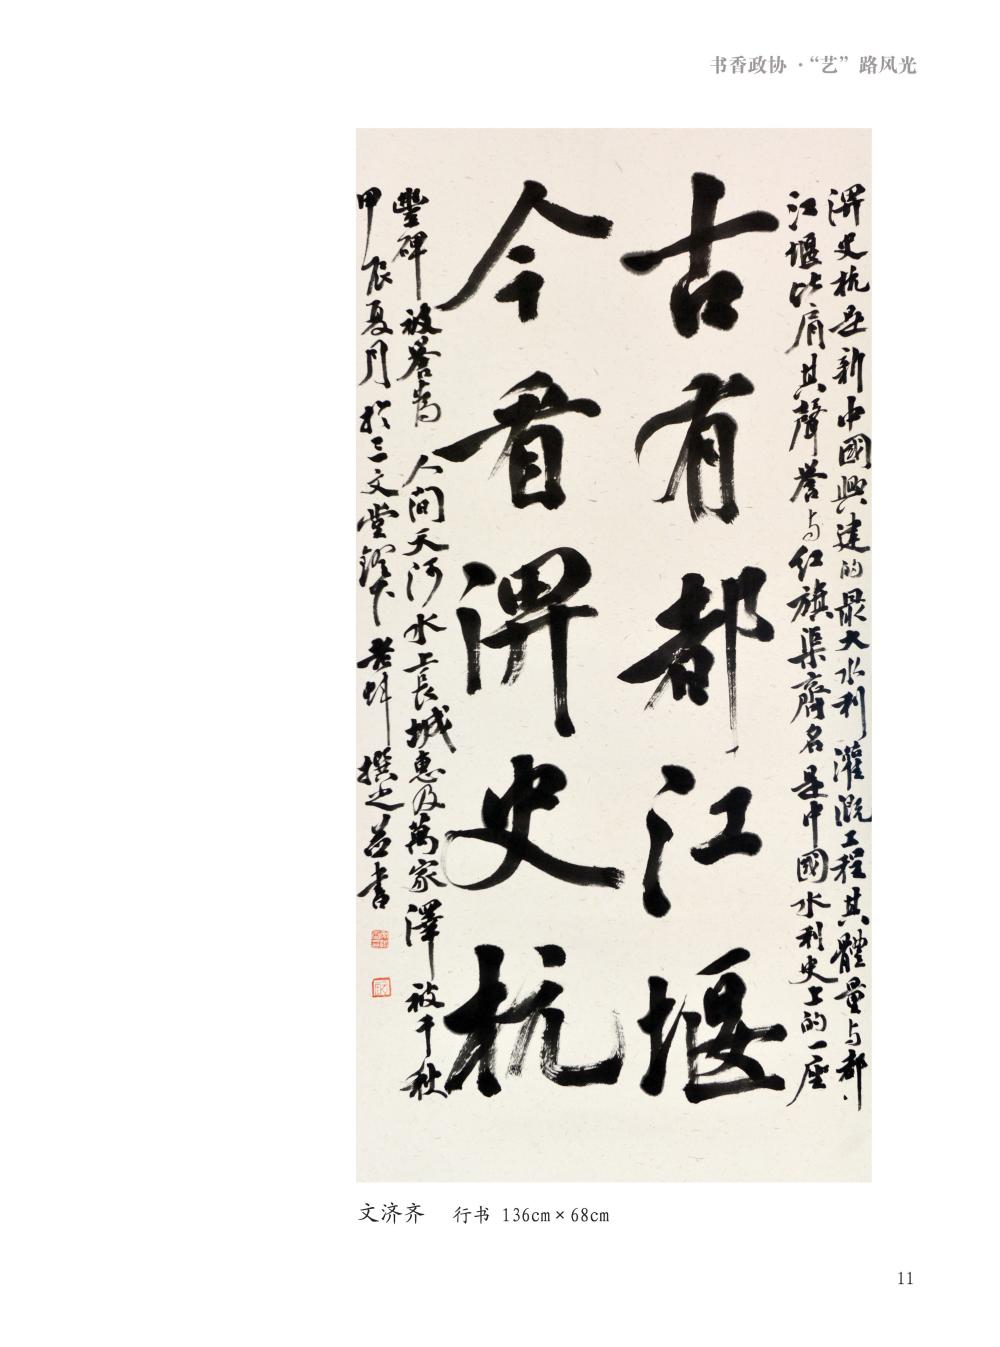 书香政协·“艺”路风光
淠史杭是新中國興建的最大水利灌溉工程其體量与都
江堰比肩其聲誉与红旗渠齊名是中國水利史上的一座
古有都江堰
今看淠史杭
豐碑被誉为人间天河水上長城惠及萬家澤被千秋
甲辰夏月於三文堂鐙下 撰之並书
文济齐 行书 136cm×68cm
11